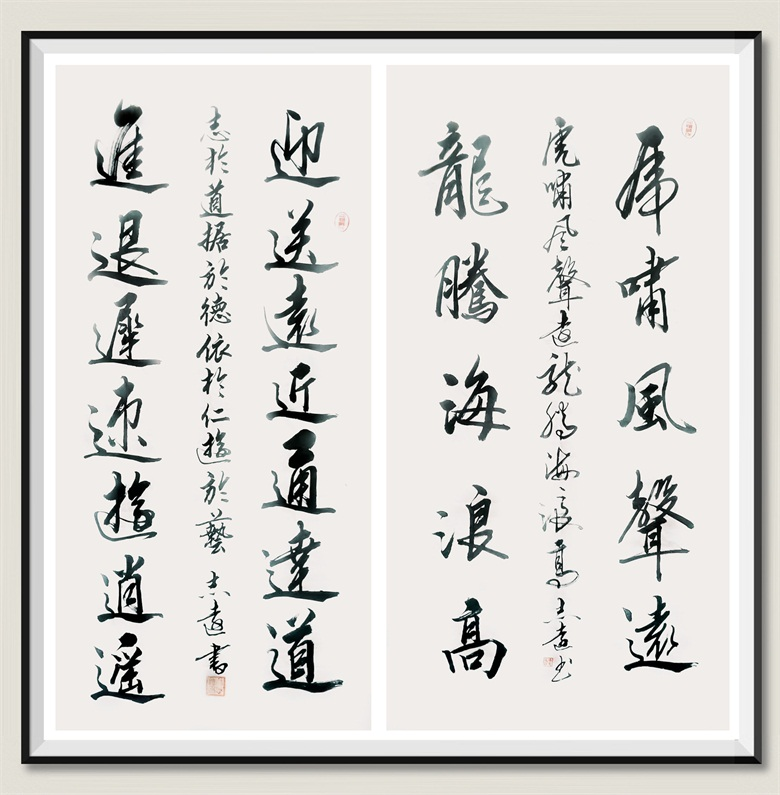 虎嘯風聲遠
虎嘯风聲遠龍腾海浪高志遠书
龍騰海浪高
迎送遠近通達道
志於道据於德依於仁遊於藝 志遠書
進退遲速遊逍遥